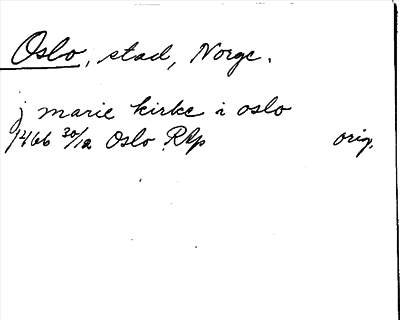 Oslo, stad, Norge.
j marie kirke i oslo
1466 30/12 Oslo RAp orig.